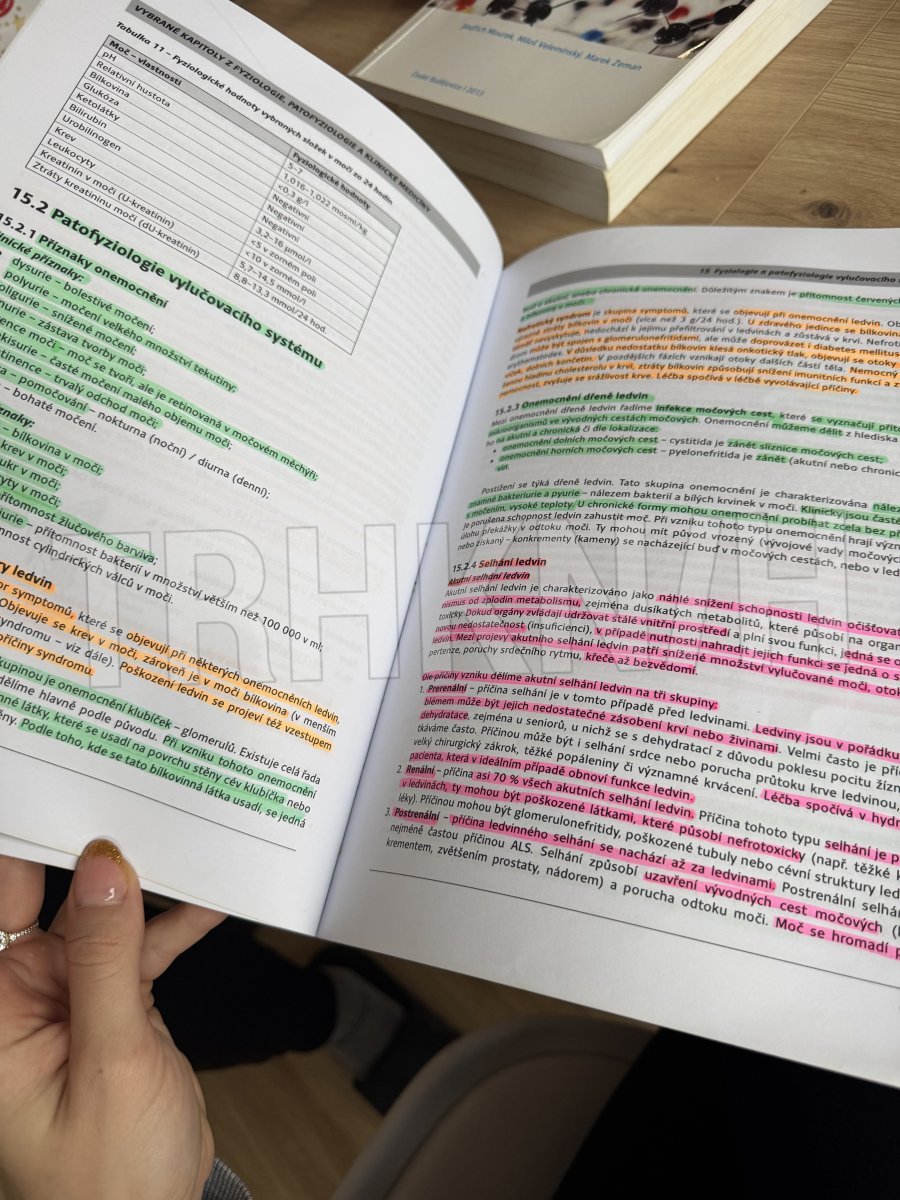 Jindřich Mourek, Miloš Velemínský, Marek Zeman
České Budějovice | 2013
VYBRANÉ KAPITOLY Z FYZIOLOGIE, PATOFYZIOLOGIE A KLINICKÉ MEDICÍNY
Tabulka 11 – Fyziologické hodnoty vybraných složek v moči za 24 hodin
Moč – vlastnosti Fyziologické hodnoty
pH 5–7
Relativní hustota 1,016–1,022 mosmi/kg
Bílkovina <0,3 g/l
Glukóza Negativní
Ketolátky Negativní
Bilirubin Negativní
Urobilinogen 3,2–16 µmol/l
Krev <5 v zorném poli
Leukocyty <10 v zorném poli
Kreatinin v moči (U-kreatinin) 5,7–14,5 mmol/l
Ztráty kreatininu močí (dU-kreatinin) 8,8–13,3 mmol/24 hod.
15.2 Patofyziologie vylučovacího systému
15.2.1 Příznaky onemocnění
příznaky:
dysurie – bolestivé močení;
polyurie – močení velkého množství tekutiny;
oligurie – snížené močení;
– zástava tvorby moči;
moči – moč se tvoří, ale je retinovaná v močovém měchýři;
– časté močení malého objemu moči;
– trvalý odchod moči;
– pomočování – nokturna (noční) / diurna (denní);
– bohaté močení.
– bílkovina v moči;
krev v moči;
v moči;
v moči;
přítomnost žlučového barviva;
– přítomnost bakterií v množství větším než 100 000 v ml;
přítomnost cylindrických válců v moči.
ledvin
symptomů, které se objevují při některých onemocněních ledvin.
Objevuje se krev v moči, zároveň je v moči bílkovina (v menším
syndromu – viz dále). Poškození ledvin se projeví též vzestupem
příčiny syndromu.
skupinou je onemocnění klubíček – glomerulů. Existuje celá řada
dělíme hlavně podle původu. Při vzniku tohoto onemocnění
látky, které se usadí na povrchu stěny cév klubíčka nebo
Podle toho, kde se tato bílkovinná látka usadí, se jedná
15 Fyziologie a patofyziologie vylučovacího
anebo chronické onemocnění. Důležitým znakem je přítomnost červených
a bílkoviny v moči.
Nefrotický syndrom je skupina symptomů, které se objevují při onemocnění ledvin.
ztráty bílkovin v moči (více než 3 g/24 hod.). U zdravého jedince se bílkovina
nevyskytuje, nedochází k jejímu přefiltrování v ledvinách a zůstává v krvi.
může být spojen s glomerulonefritidami, ale může doprovázet i diabetes mellitus
erythematodes. V důsledku nedostatku bílkovin klesá onkotický tlak, objevuje se otoky
víček, dolních končetin. V pozdějších fázích vznikají otoky dalších částí těla. Nemocný
hladinu cholesterolu v krvi, ztráty bílkovin způsobují snížení imunitních funkcí a
nemocnost, zvyšuje se srážlivost krve. Léčba spočívá v léčbě vyvolávající příčiny.
15.2.3 Onemocnění dřeně ledvin
Mezi onemocnění dřeně ledvin řadíme infekce močových cest, které se vyznačují
mikroorganismů ve vývodných cestách močových. Onemocnění můžeme dělit z hlediska
na akutní a chronická či dle lokalizace:
• onemocnění dolních močových cest – cystitida je zánět sliznice močových cest;
• onemocnění horních močových cest – pyelonefritida je zánět (akutní nebo
Postižení se týká dřeně ledvin. Tato skupina onemocnění je charakterizována
bakteriurie a pyurie – nálezem bakterií a bílých krvinek v moči. Klinicky jsou časté
s močením, vysoké teploty. U chronické formy mohou onemocnění probíhat zcela bez
je porušena schopnost ledvin zahustit moč. Při vzniku tohoto typu onemocnění hrají
úlohu překážky v odtoku moči. Ty mohou mít původ vrozený (vývojové vady
nebo získaný – konkrementy (kameny) se nacházející buď v močových cestách, nebo v
15.2.4 Selhání ledvin
Akutní selhání ledvin
Akutní selhání ledvin je charakterizováno jako náhlé snížení schopnosti ledvin
od zplodin metabolismu, zejména dusíkatých metabolitů, které působí na
toxicky. Dokud orgány zvládají udržovat stálé vnitřní prostředí a plní svou funkci, jedná se o
nedostatečnost (insuficienci), v případě nutnosti nahradit jejich funkci se jedná o
ledvin. Mezi projevy akutního selhání ledvin patří snížené množství vylučované moči,
pertenze, poruchy srdečního rytmu, křeče až bezvědomí.
Dle příčiny vzniku dělíme akutní selhání ledvin na tři skupiny:
1. Prerenální – příčina selhání je v tomto případě před ledvinami. Ledviny jsou v pořádku,
blémem může být jejich nedostatečné zásobení krví nebo živinami. Velmi často je
dehydratace, zejména u seniorů, u nichž se s dehydratací z důvodu poklesu pocitu
tkáváme často. Příčinou může být i selhání srdce nebo porucha průtoku krve ledvinou,
velký chirurgický zákrok, těžké popáleniny či významné krvácení. Léčba spočívá v
pacienta, která v ideálním případě obnoví funkce ledvin.
2. Renální – příčina asi 70 % všech akutních selhání ledvin. Příčina tohoto typu selhání je
v ledvinách, ty mohou být poškozené látkami, které působí nefrotoxicky (např. těžké
léky). Příčinou mohou být glomerulonefritidy, poškozené tubuly nebo cévní struktury
3. Postrenální – příčina ledvinného selhání se nachází až za ledvinami. Postrenální
nejméně častou příčinou ALS. Selhání způsobí uzavření vývodných cest močových
krementem, zvětšením prostaty, nádorem) a porucha odtoku moči. Moč se hromadí
TRHKNIH